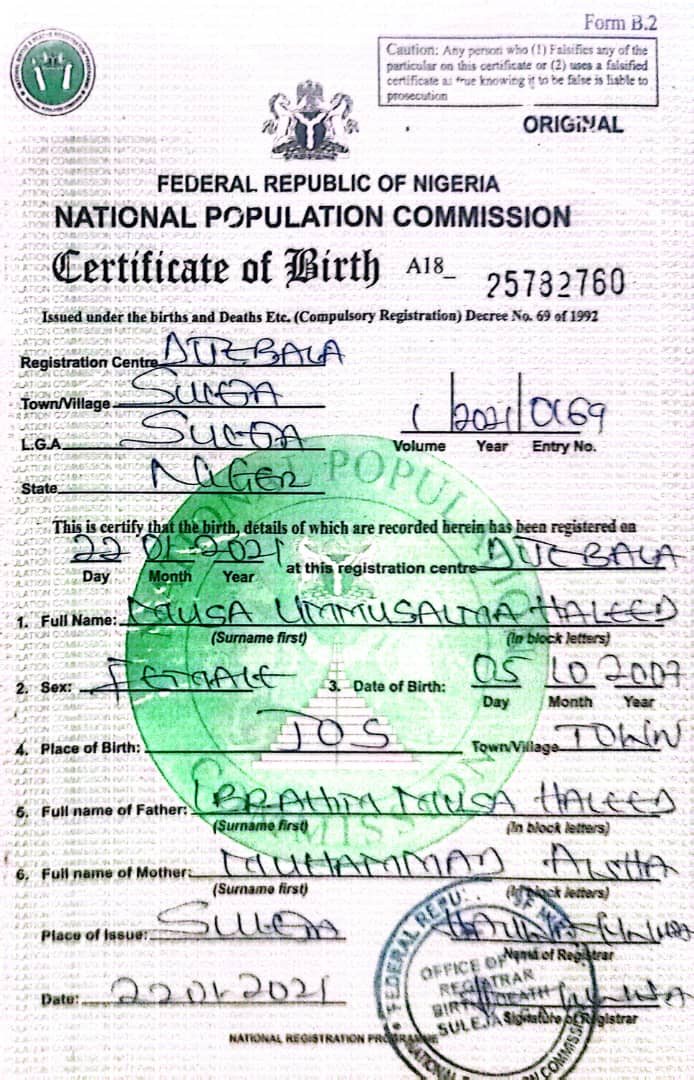 Form B.2
Caution: Any person who (1) Falsifies any of the
particular on this certificate or (2) uses a falsified
certificate as true knowing it to be false is liable to
prosecution
ORIGINAL
FEDERAL REPUBLIC OF NIGERIA
NATIONAL POPULATION COMMISSION
Certificate of Birth A18_ 25782760
Issued under the births and Deaths Etc. (Compulsory Registration) Decree No. 69 of 1992
Registration Centre
Town/Village SULEJA
L.G.A SULEJA 1 2021 0169
Volume Year Entry No.
State NIGER
This is certify that the birth, details of which are recorded herein has been registered on
22 01 2021 at this registration centre
Day Month Year
1. Full Name: MUSA UMMUSALMA HALEED
(Surname first) (In block letters)
2. Sex: FEMALE 3. Date of Birth: 05 10 2007
Day Month Year
4. Place of Birth: JOS Town/Village TOWN
5. Full name of Father: IBRAHIM MUSA HALEED
(Surname first) (In block letters)
6. Full name of Mother: MUHAMMAD AISHA
(Surname first) (In block letters)
Place of Issue: SULEJA
Name of Registrar
Date: 22 01 2021
Signature of Registrar
OFFICE OF
REGISTRAR
BIRTH DEATH
SULEJA
NATIONAL REGISTRATION PROGRAMME